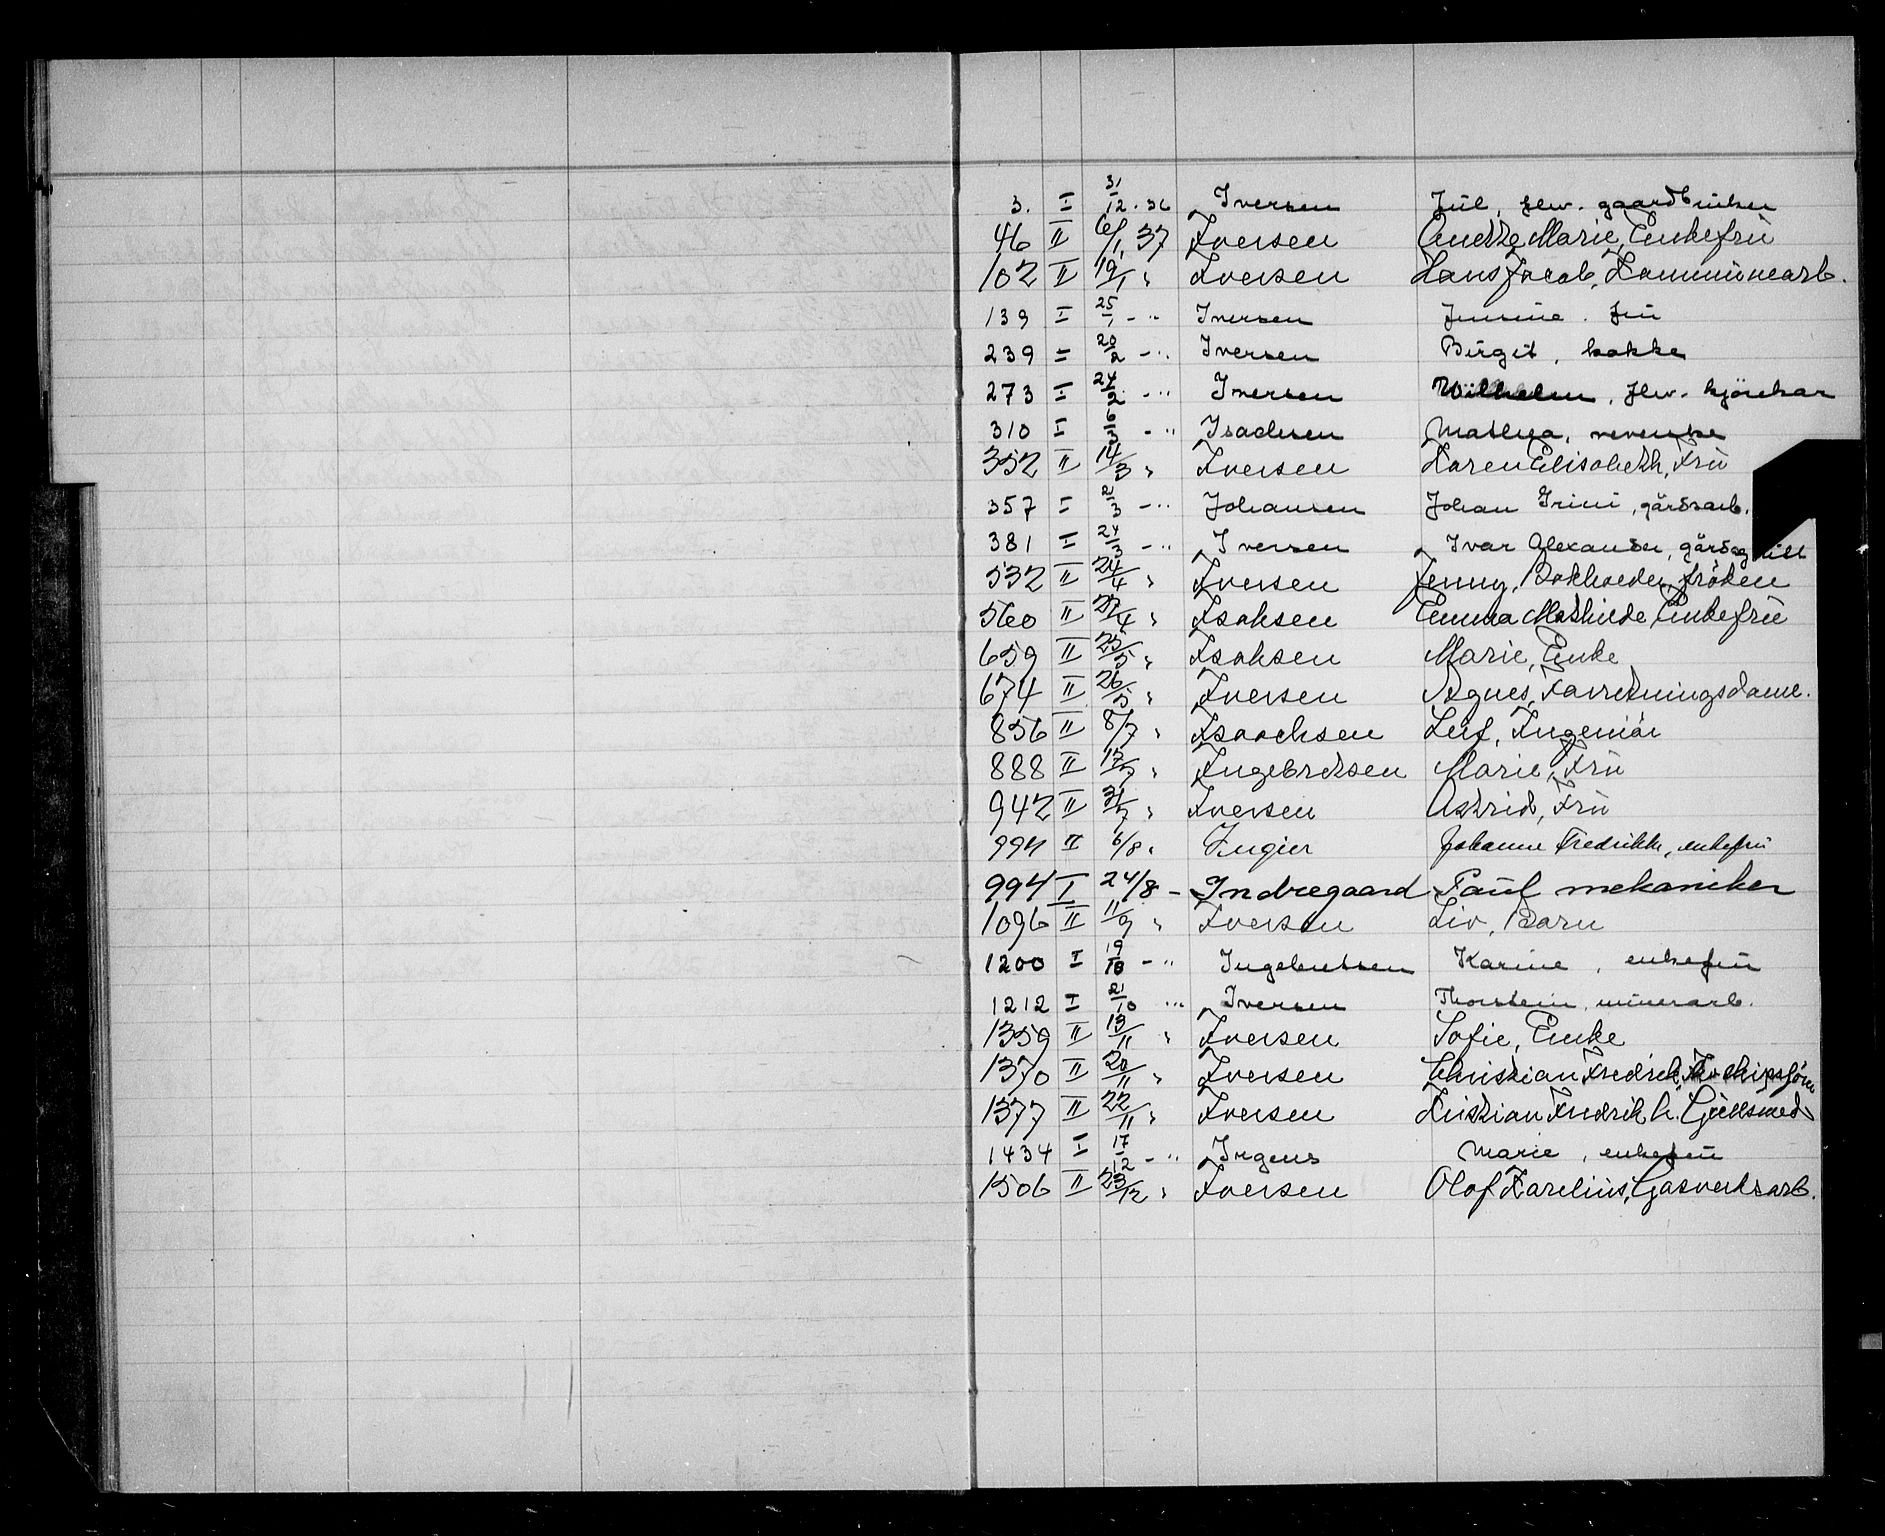 3. I 31/12 . 36 Iversen Jul, flw. gaardbruker
46 II 6/1 37 Iversen Anette Marie, Enkefru
102 II 19/1 " Iversen Hans Jacob, Kommunearb.
139 I 25/1 - " Iversen Jensine . fru
239 I 20/2 - " Iversen Birgit, kokke
273 I 24/2 - " Iversen Wilhelm, flw. kjörekar
310 I 6/3 - " Isachsen Mathea,
352 II 14/3 " Iversen Karen Elisabeth, Fru
357 I 21/3 - " Johansen Johan Irini, gårdsarb.
381 I 24/3 - " Iversen Ivar Alexander,
532 II 24/4 " Iversen Jenny, Bokholder, fröken
560 II 27/4 " Isaksen Emma Mathilde Enkefru
659 II 25/5 " Isaksen Marie, Enke
674 II 26/5 " Iversen Agnes, Forretningsdame.
856 II 8/7 " Isaachsen Leif, Ingeniör
888 II 17/7 " Ingebretsen Marie, Fru
942 II 31/7 " Iversen Astrid, Fru
994 II 6/8 " Ingier Johanne Fredrikke, enkefru
994 I 24/8 - Indregaard Paul mekaniker
1096 II 11/9 " Iversen Liv, Barn
1200 I 19/10 - " Ingebretsen Karine, enkefru
1212 I 21/10 " Iversen Thorstein, minerarb.
1359 II 13/11 " Iversen Sofie, Enke
1370 II 20/11 " Iversen Christian Fredrik,
1377 II 22/11 " Iversen Kristian Fredrik h. Gullsmed
1434 I 17/12 - " Irgens Marie, enkefru
1506 II 23/12 " Iversen Olof Karelius, Gasverksarb.